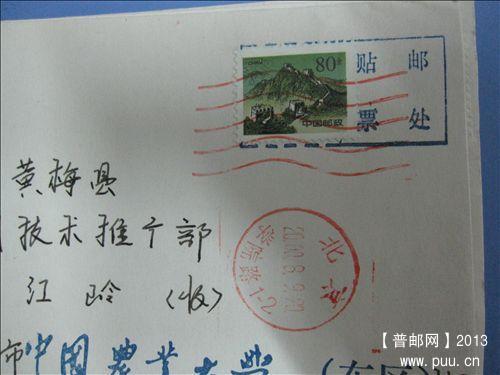 80分
中国邮政
贴 邮
票 处
黄梅县
技术推广部
江 岭 (收)
北京
2000.8.9.20
学院路 1-2
市中国农业大学(东区)
【普邮网】2013
www.puu.cn